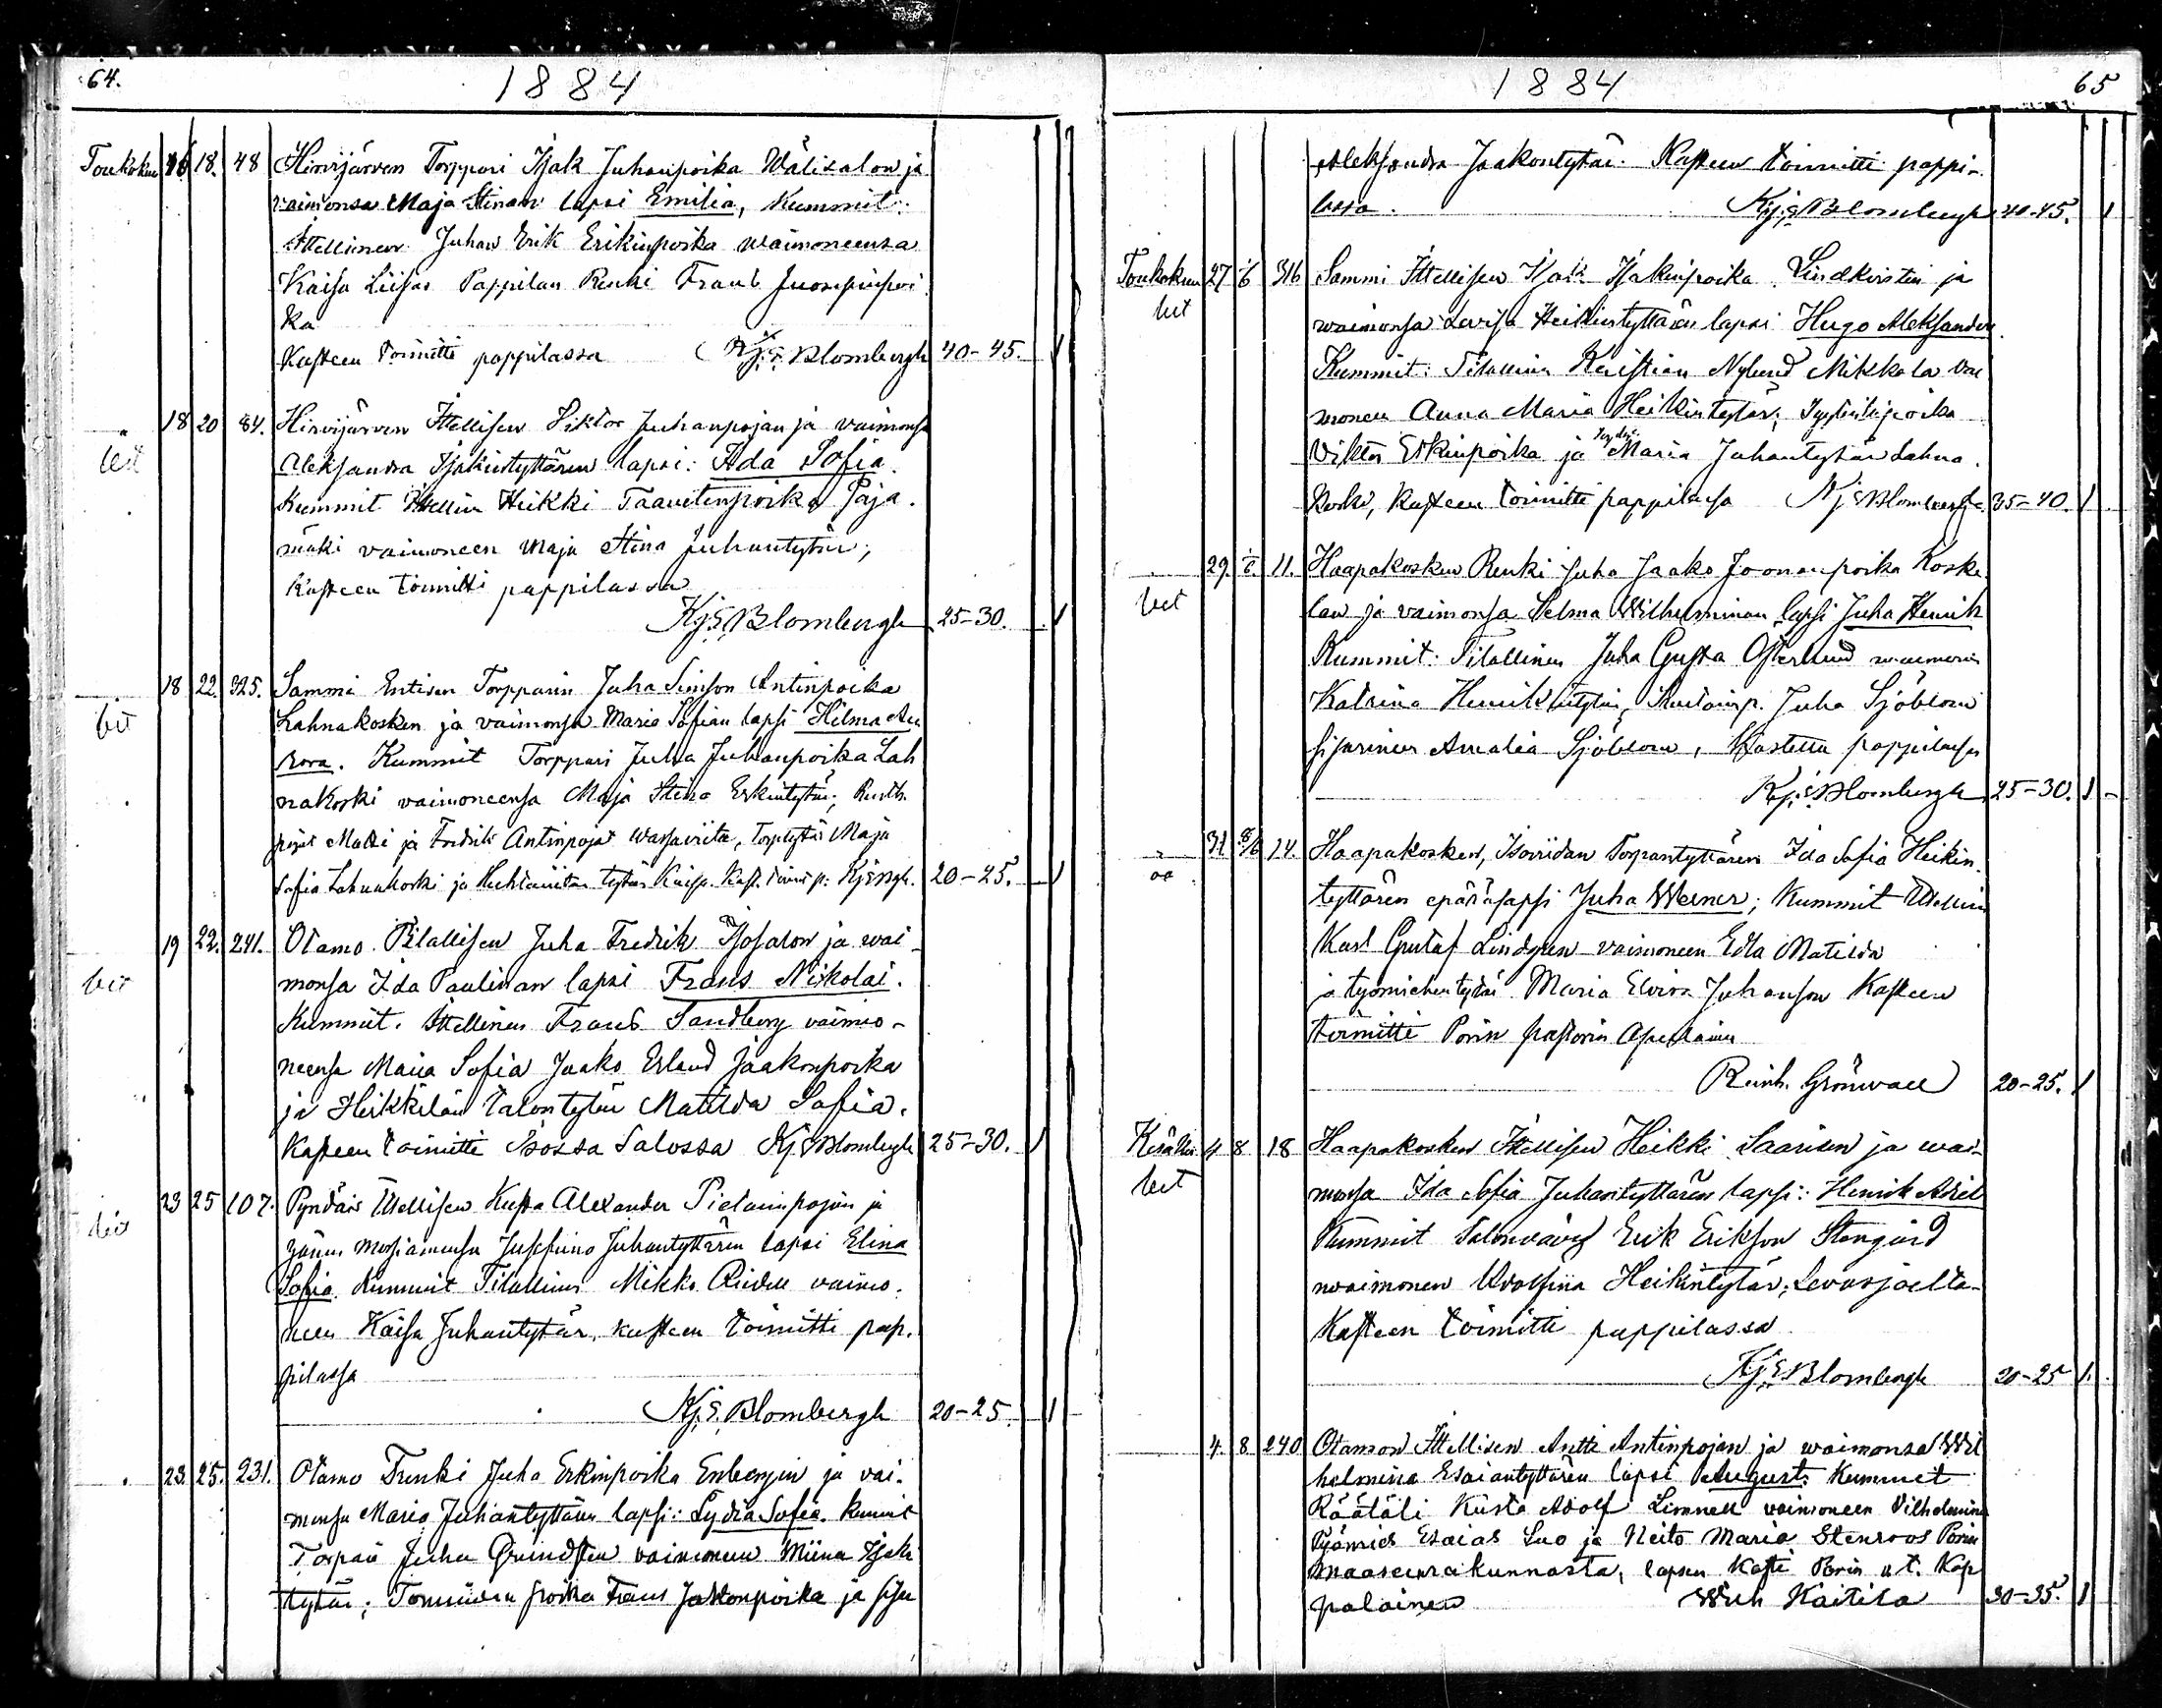 64.
1884
Toukokuu 16 18. 48 Hirvijärven Torppari Isak Juhanpoika Välisalon ja
vaimonsa Maja Stinan lapsi Emilia, Kummit:
Ittellinen Juhan Erik Erikinpoika waimoneensa
Kaisa Liisa Pappilan Renki Frans Juosepinpoi
ka
Kasteen toimitti pappilassa Kj. E. Blombergh 40-45.
18 20 84. Hirvijärven Ittellisen Viktor Juhanpojan ja vaimonsa
Aleksandra Isakintyttären lapsi: Ida Sofia.
Kummit Ittellin Heikki Taavetinpoika Paja.
mäki vaimoneen Maja Stina Juhantytär;
Kasteen toimitti pappilassa
Kj. E. Blombergh 25-30.
18 22. 325. Sammi Entisen Torpparin Juha Simson Antinpoika
Lahnakosken ja vaimonsa Maria Sofian lapsi Hilma Au
rora. Kummit Torppari Juha Juhanpoika Lah
nakoski vaimoneensa Maja Stina Erkintytär;
pojat Matti ja Fredrik Antinpojat Torp.tytär Maja
Sofia Lahnakoski ja tytär Kaisa. Kast. toimi p: 20-25.
19 22. 241. Otamo Tilallisen Juha Fredrik Isosalon ja wai-
monsa Ida Paulinan lapsi Frans Nikolai.
Kummit. Ittellinen Frans Sandberg vaimo-
neensa Maria Sofia Jaako Erland Jaakonpoika
ja Heikkilän talontytär Matilda Sofia.
Kasteen toimitti Isossa Salossa Kj E Blombergh 25-30.
23 25 107. Pyndäis Ittellisen Kusta Alexander Pietarinpojan ja
Josefiina Juhantyttären lapsi Elina
Sofia. Kummit Tilallinen Mikko vaimo.
neen Kaisa Juhantytär, kasteen toimitti pap.
pilassa
Kj. E. Blombergh 20-25.
23. 25. 231. Otamo Trenki Juha Erkinpoika Enbergin ja vai.
monsa Maria Juhantyttären lapsi: Lydia Sofia. kummit
Torpari Juha Grundsten vaimoneen Miina Isak
tytär; poika Frans Jakkonpoika ja
1884
65
Aleksandra Jaakontytär. Kasteen toimitti pappi-
lassa. Kj. E. Blombergh 40-45.
Toukokuu 27 1/6 316 Sammi Ittellisen Isak Isakinpoika Lindkvistin ja
waimonsa Lovisa Heikintyttären lapsi Hugo Aleksander.
Kummit: Tilallinen Kristian Nylund Mikkola vai
monen Anna Maria Heikintytär;
Viktor Erkinpoika ja Maria Juhantytär Lahna.
koski, Kasteen toimitti pappilassa Kj E Blombergh 35-40.
29. 1/6. 11. Haapakosken Renki Juha Jaako Joonanpoika Koske
lan ja vaimonsa Selma Wilhelminan lapsi Juha Henrik
Kummit: Tilallinen Juha Gusta Österlund waimoneen
Katrina Henrikintytär, Juha Sjöblom
sisarineen Amalia Sjöblom, Kastettu pappilassa
Kj. E. Blombergh 25-30.
31 8/6 14. Haapakosken, Torpantyttären Ida Sofia Heikin
tyttären epäräslapsi Juha Werner; Kummit Ittellinen
Karl Gustaf Lindgren vaimoneen Edla Matilda
ja työmiehen tytär Maria Elvira Juhanson Kasteen
toimitti Porin pastorin Apulainen
Reinh. Grönvall 20-25.
Kesäku 4 8 18 Haapakosken Ittellisen Heikki Saarisen ja wai-
monsa Ida Sofia Juhantyttären lapsi: Henrik Axel
Kummit Talonvävy Erik Erikson Stengård
waimonen Adolfiina Heikintytär; Levasjoelta-
Kasteen toimitti pappilassa
Kj. E. Blombergh 20-25
4. 8 240 Otamon Ittellisen Antti Antinpojan ja waimonsa Wil
helmina Esaiantyttären lapsi August. Kummit
Räätäli Kusta Adolf Limnell vaimoneen Vilhelmina
Työmies Esaias Luo ja Neito Maria Stenroos Porin
maaseurakunnasta, lapsen kasti Porin v.t. Kap
palainen Wilh Kaitila 30-35.